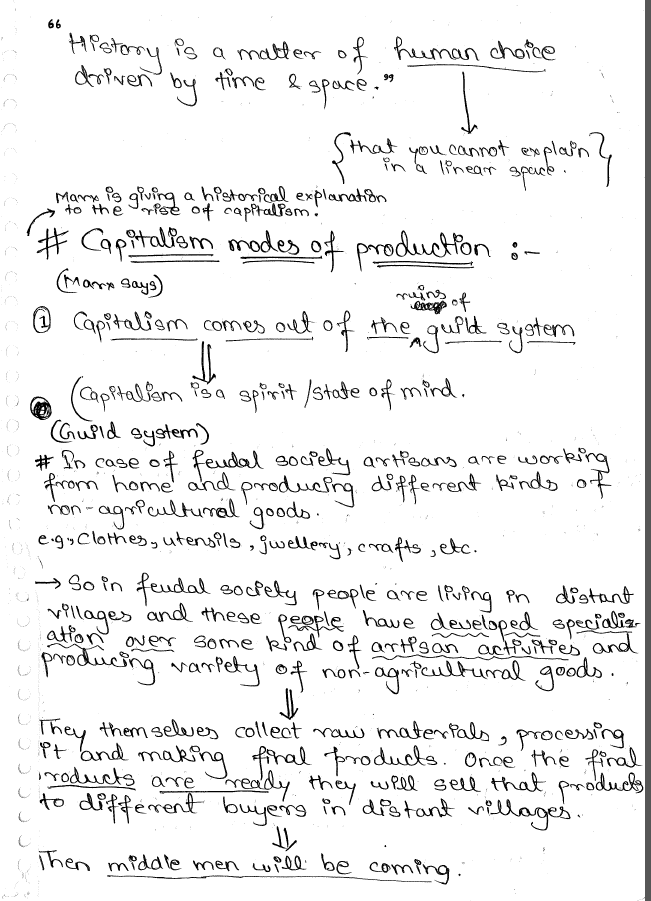 66
History is a matter of human choice
driven by time & space."
{that you cannot explain}
in a linear space.
Marx is giving a historical explanation
to the rise of capitalism.
# Capitalism modes of production :-
(Marx says)
ruins of
① Capitalism comes out of the ^ guild system
(Capitalism is a spirit/state of mind.
(Guild system)
# In case of feudal society artisans are working
from home and producing different kinds of
non-agricultural goods.
e.g., Clothes, utensils, jwellery, crafts, etc.
→ So in feudal society people are living in distant
villages and these people have developed specializ-
ation over some kind of artisan activities and
producing variety of non-agricultural goods.
They themselves collect raw materials, processing
it and making final products. Once the final
roducts are ready they will sell that products
to different buyers in distant villages.
Then middle men will be coming.